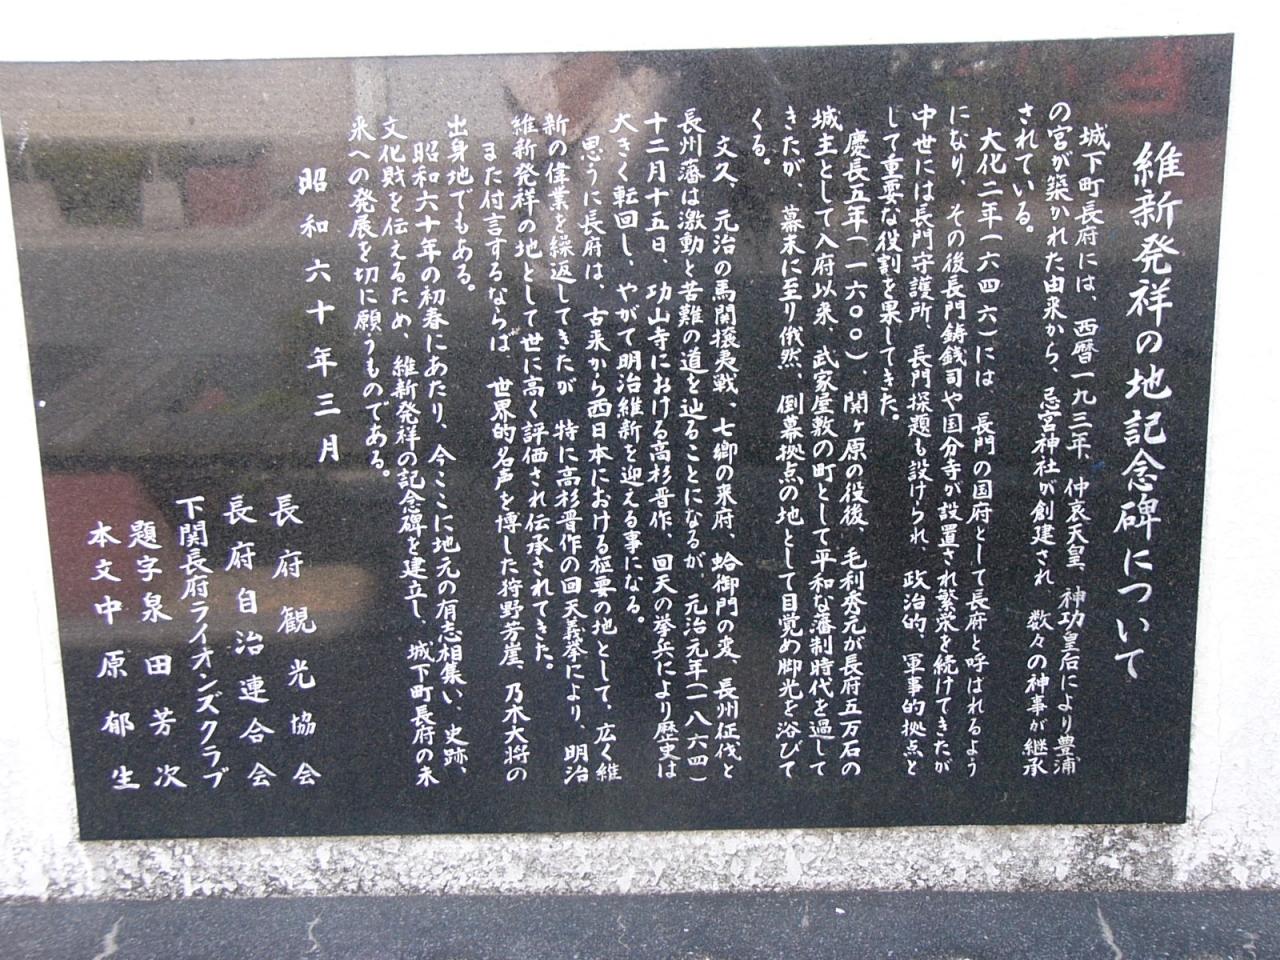 維新発祥の地記念碑について
城下町長府には、西暦一九三年、仲哀天皇、神功皇后により豊浦
の宮が築かれた由来から、忌宮神社が創建され、数々の神事が継承
されている。
大化二年(六四六)には、長門の国府として長府と呼ばれるよう
になり、その後長門鋳銭司や国分寺が設置され繁栄を続けてきたが
中世には長門守護所、長門探題も設けられ、政治的、軍事的拠点と
して重要な役割を果してきた。
慶長五年(一六〇〇)、関ヶ原の役後、毛利秀元が長府五万石の
城主として入府以来、武家屋敷の町として平和な藩制時代を過して
きたが、幕末に至り俄然、倒幕拠点の地として目覚め脚光を浴びて
くる。
文久、元治の馬関攘夷戦、七郷の来府、蛤御門の変、長州征伐と
長州藩は激動と苦難の道を辿ることになるが、元治元年(一八六四)
十二月十五日、功山寺における高杉晋作、回天の挙兵により歴史は
大きく転回し、やがて明治維新を迎える事になる。
思うに長府は、古来から西日本における枢要の地として、広く維
新の偉業を繰返してきたが、特に高杉晋作の回天義挙により、明治
維新発祥の地として世に高く評価され伝承されてきた。
また付言するならば、世界的名声を博した狩野芳崖、乃木大将の
出身地でもある。
昭和六十年の初春にあたり、今ここに地元の有志相集い、史跡、
文化財を伝えるため、維新発祥の記念碑を建立し、城下町長府の未
来への発展を切に願うものである。
昭和六十年三月
長府観光協会
長府自治連合会
下関長府ライオンズクラブ
題字泉田芳次
本文中原郁生